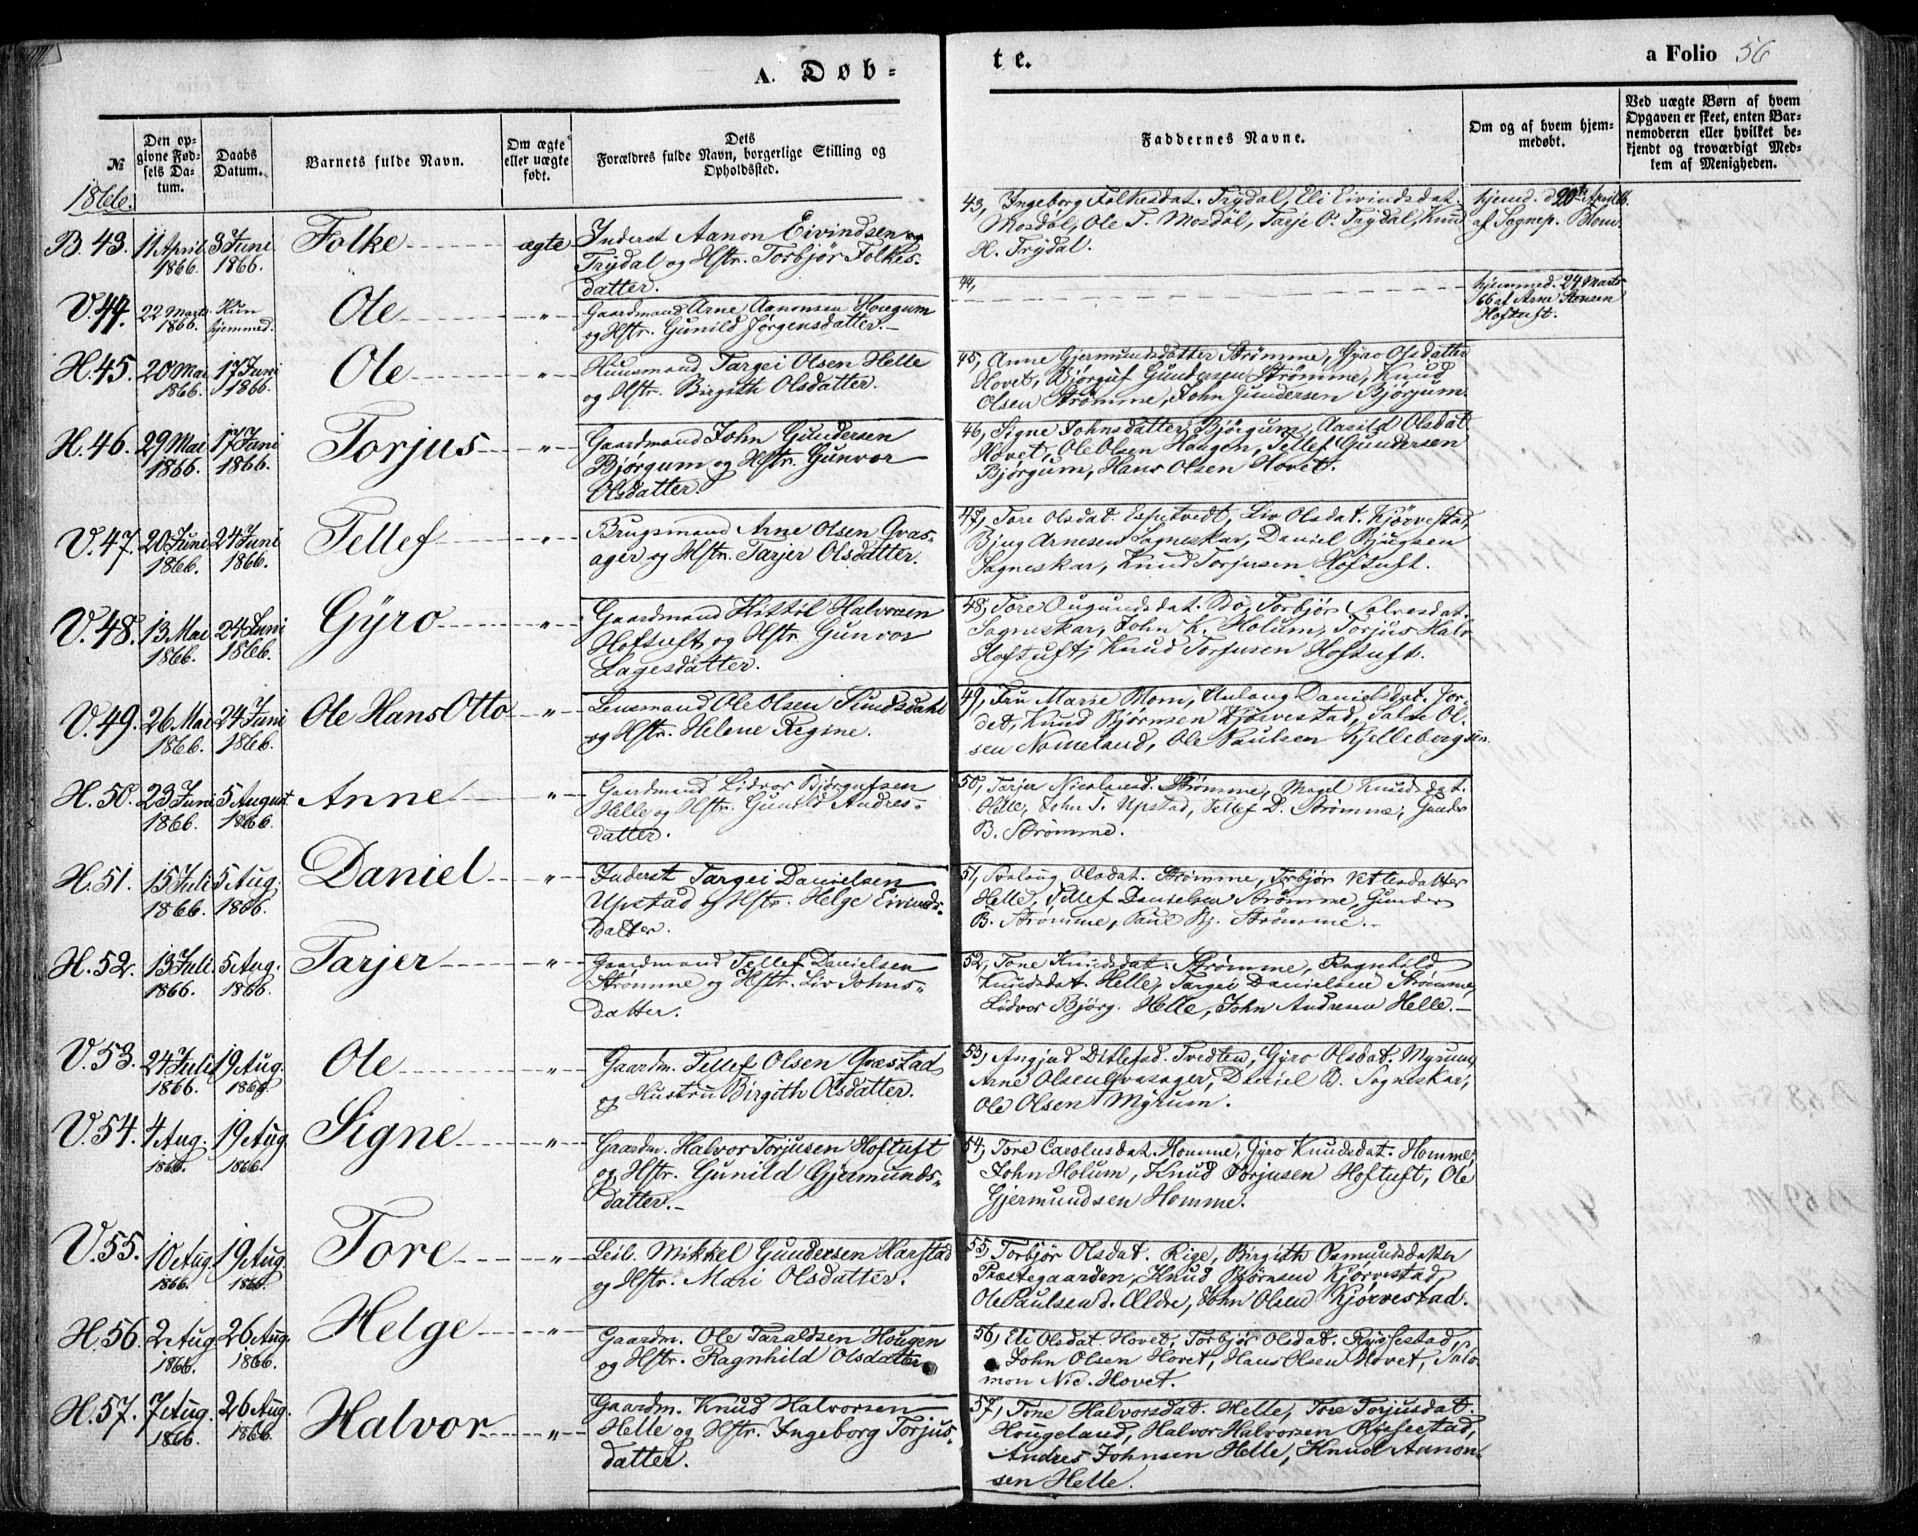 A. Døb-
№
Den op-
givne Fød-
sels Da-
tum.
Daabs
Datum.
Barnets fulde Navn.
Om ægte
eller uægte
født.
Dets
Forældres fulde Navn, borgerlige Stilling og
Opholdssted.
1866.
B. 43. 11 April 1866. 3 Juni 1866. Folke ægte Inderst Aanon Eivindsen
Trydal og Hstr. Torbjør Folkes-
datter.
V. 44. 22 Marts 1866. Kun hjemmed. Ole " Gaardmand Arne Aanonsen Hougum
og Hstr. Gunild Jørgensdatter.
H. 45. 20 Mai 1866. 17 Juni 1866. Ole " Huusmand Targei Olsen Helle
og Hstr. Birgith Olsdatter.
H. 46. 29 Mai 1866. 17 Juni 1866. Torjus " Gaardmand John Gundersen
Bjørgum og Hstr. Gunvor
Olsdatter.
V. 47. 20 Juni 1866. 24 Juni 1866. Tellef " Brugsmand Arne Olsen Qvas-
ager og Hstr. Tarjer Olsdatter.
V. 48. 13 Mai 1866. 24 Juni 1866. Gyro " Gaardmand Kittil Halvorsen
Hoftuft og Hstr. Gunvor
Lagesdatter.
V. 49. 26 Mai 1866. 24 Juni 1866. Ole Hans Otto " Lensmand Ole Olsen Sundsdahl
og Hstr. Helene Regine.
H. 50. 23 Juni 1866. 5 August 1866. Anne " Gaardmand Lidvor Bjørgufsen
Helle og Hstr. Gunild Andres-
datter.
H. 51. 15 Juli 1866. 5 Aug. 1866. Daniel " Inderst Targei Danielsen
Upstad og Hstr. Helge Eivinds-
datter.
H. 52. 13 Juli 1866. 5 Aug. 1866. Tarjer " Gaardmand Tellef Danielsen
Strømme og Hstr. Liv Johns-
datter.
V. 53. 24 Juli 1866. 19 Aug. 1866. Ole " Gaardm. Tellef Olsen Qvæstad
og Hustru Birgith Olsdatter.
V. 54. 4 Aug. 1866. 19 Aug. 1866. Signe " Gaardm. Halvor Torjusen Hoftuft
og Hstr. Gunild Gjermunds-
datter.
V. 55. 10 Aug. 1866. 19 Aug. 1866. Tore " Leil. Mikkel Gundersen Harstad
og Hstr. Mari Olsdatter.
H. 56. 2 Aug. 1866. 26 Aug. 1866. Helge " Gaardm. Ole Taraldsen Hougen
og Hstr. Ragnhild Olsdatter
H. 57. 7 Aug. 1866. 26 Aug. 1866. Halvor " Gaardm. Knud Halvorsen
Helle og Hstr. Ingeborg Torjus-
datter.
te.
a Folio 56
Faddernes Navne.
Om og af hvem hjem-
medøbt.
Ved uægte Børn af hvem
Opgaven er skeet, enten Bar-
nemoderen eller hvilket be-
kjendt og troværdigt Med-
lem af Menigheden.
43, Ingeborg Folkesdat. Trydal, Eli Eivindsdat.
Mosdøl, Ole T. Mosdøl, Tarje P. Trydal, Knud
H. Trydal.
hjemd. d. 20de April
af Sognep. Blom.
44,
hjemmed. 24 Marts
66 af Arne Hoftuft.
45, Anne Gjermundsdatter Strømme, Gyro Olsdatter
Hovet, Bjørguf Gundersen Strømme, Knud
Olsen Strømme, John Gundersen Bjørgum.
46, Signe Johnsdatter Bjørgum, Aasild Olsdat.
Hovet, Ole Olsen Hougen, Tellef Gundersen
Bjørgum, Hans Olsen Hovet.
47, Tore Olsdat. Espetvedt, Liv Olsdat. Kjørvestad
Bjug Arnesen Sogneskar, Daniel Bjugsen
Sogneskar, Knud Torjusen Hoftuft.
48, Tore Ougundsdat. Bø, Torbjør Salvesdat.
Sogneskar, John K. Holum, Torjus Halv.
Hoftuft, Knud Torjusen Hoftuft.
49, Fru Marie Blom, Anlaug Danielsdat. Jor-
det, Knud Bjørnsen Kjørvestad, Salve Ol-
sen Nomeland, Ole Paulsen Kjellebergsen.
50, Tarjer Nicolaisd. Strømme, Magel Knudsdat.
Helle, John T. Upstad, Tellef D. Strømme, Gunder
B. Strømme.
51, Aslaug Olsdat. Strømme, Torbjør Vetlesdatter
Helle, Tellef Danielsen Strømme, Gunder
B. Strømme, Paul Bj. Strømme.
52, Tone Knudsdat. Strømme, Ragnhild
Knudsdat. Helle, Targei Danielsen Strømme,
Lidvor Bjørg. Helle, John Andresen Helle.
53, Angjerd Ditlefsd. Tvedten, Gyro Olsdat. Myrum,
Arne Olsen Qvasager, Daniel B. Sogneskar,
Ole Olsen Myrum.
54, Tore Carolusdat. Homme, Gyro Knudsdat. Homme,
John Holum, Knud Torjusen Hoftuft, Ole
Gjermundsen Homme.
55, Torbjør Olsdat. Rige, Birgith Osmundsdatter
Præstegaarden, Knud Bjørnsen Kjørvestad,
Ole Paulsen d. Ældre, John Olsen Kjørvestad.
56, Eli Olsdat. Hovet, Torbjør Olsdat. Rysfestad,
John Olsen Hovet, Hans Olsen Hovet, Salo-
mon Nic. Hovet.
57, Tone Halvorsdat. Helle, Tore Torjusdat.
Hougeland, Halvor Halvorsen Rysfestad,
Andres Johnsen Helle, Knud Aanon-
sen Helle.